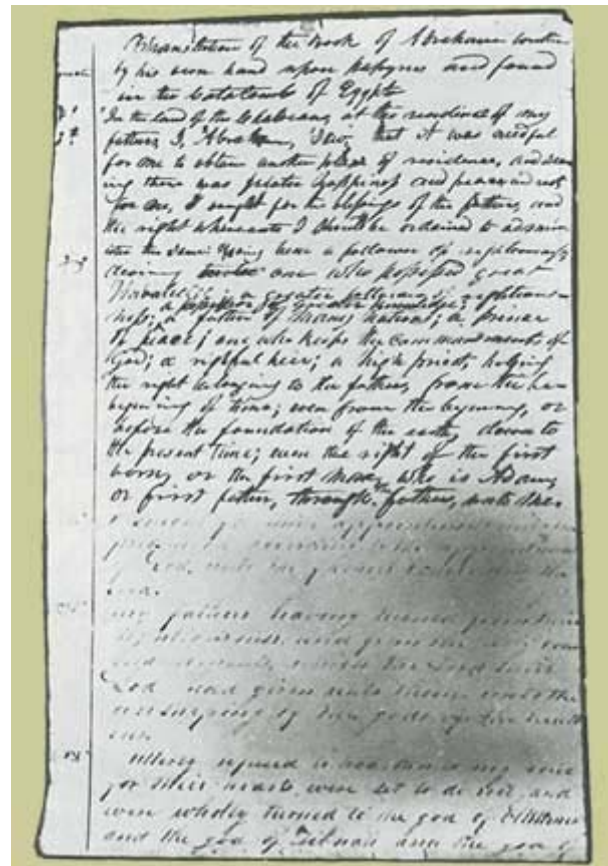 Translation of the Book of Abraham written
by his own hand upon papyrus and found
in the Catacombs of Egypt
In the land of the Chaldeans, at the residence of my
father, I, Abraham, saw, that it was needful
for me to obtain another place of residence, and see
ing there was greater happiness and peace and rest
for me, I sought for the blessings of the fathers, and
the right whereunto I should be ordained to admin
ister the same. Having been a follower of righteousness
desiring one who possessed great
Knowledge; a greater follower of righteous
a possessor of greater knowledge;
ness; a father of many nations; a prince
of peace; one who keeps the commandments of
God; a rightful heir; a high priest, holding
the right belonging to the fathers, from the be
begining of time; even from the begining, or
before the foundation of the earth, down to
the present time; even the right of the first
born, or the first man, who is Adam,
or first father, through the fathers, unto me.
I sought
God, unto the
my fathers having turned from their
righteousness, and from the
the Lord their
God had given unto them unto the
worshiping of the gods of the heath
ens
utterly refused to hearken to my voice
for their hearts were set to do evil and
were wholly turned to the god of Elkkener
and the god of Zibnah and the god of